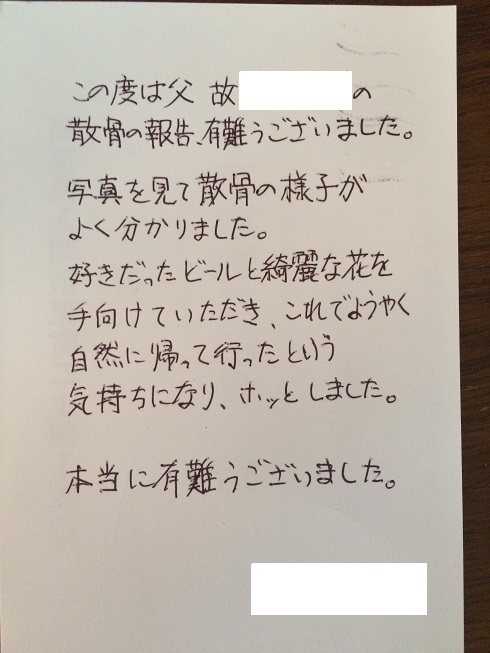 この度は父 故 の
散骨の報告、有難うございました。
写真を見て散骨の様子が
よく分かりました。
好きだったビールと綺麗な花を
手向けていただき、これでようやく
自然に帰って行ったという
気持ちになり、ホッとしました。
本当に有難うございました。